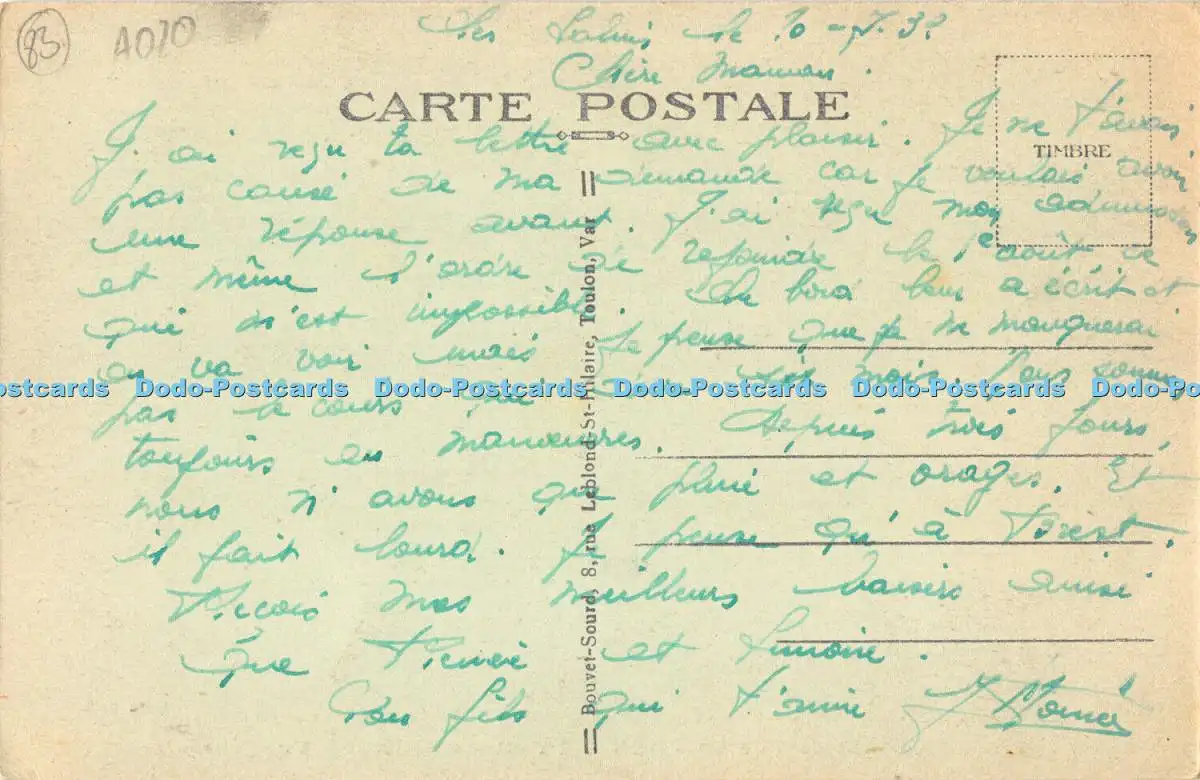 83
A070
Les Salins le 10-7.32
Chère Maman.
CARTE POSTALE
J'ai reçu ta lettre avec plaisir. Je ne t'avais
TIMBRE
pas causé de ma demande car je voulais avoir
une réponse avant. J'ai reçu mon admission
et même l'ordre de rejoindre le 1e août ce
qui m'est impossible. Le bord leur a écrit et
on va voir mais je pense que je ne manquerai
pas le cours mois. Nous sommes
Dodo-Postcards Dodo-Postcards Dodo-Postcards Dodo-Postcards Dodo-Postcards
toujours en manœuvres. Depuis trois jours,
nous n'avons que pluie et orages. Et
il fait lourd. Je pense qu'à Brest.
Reçois mes meilleurs baisers ainsi
que et Simone.
Ton fils qui t'aime
Bouvet-Sourd, 8, rue Leblond-St-Hilaire, Toulon, Var